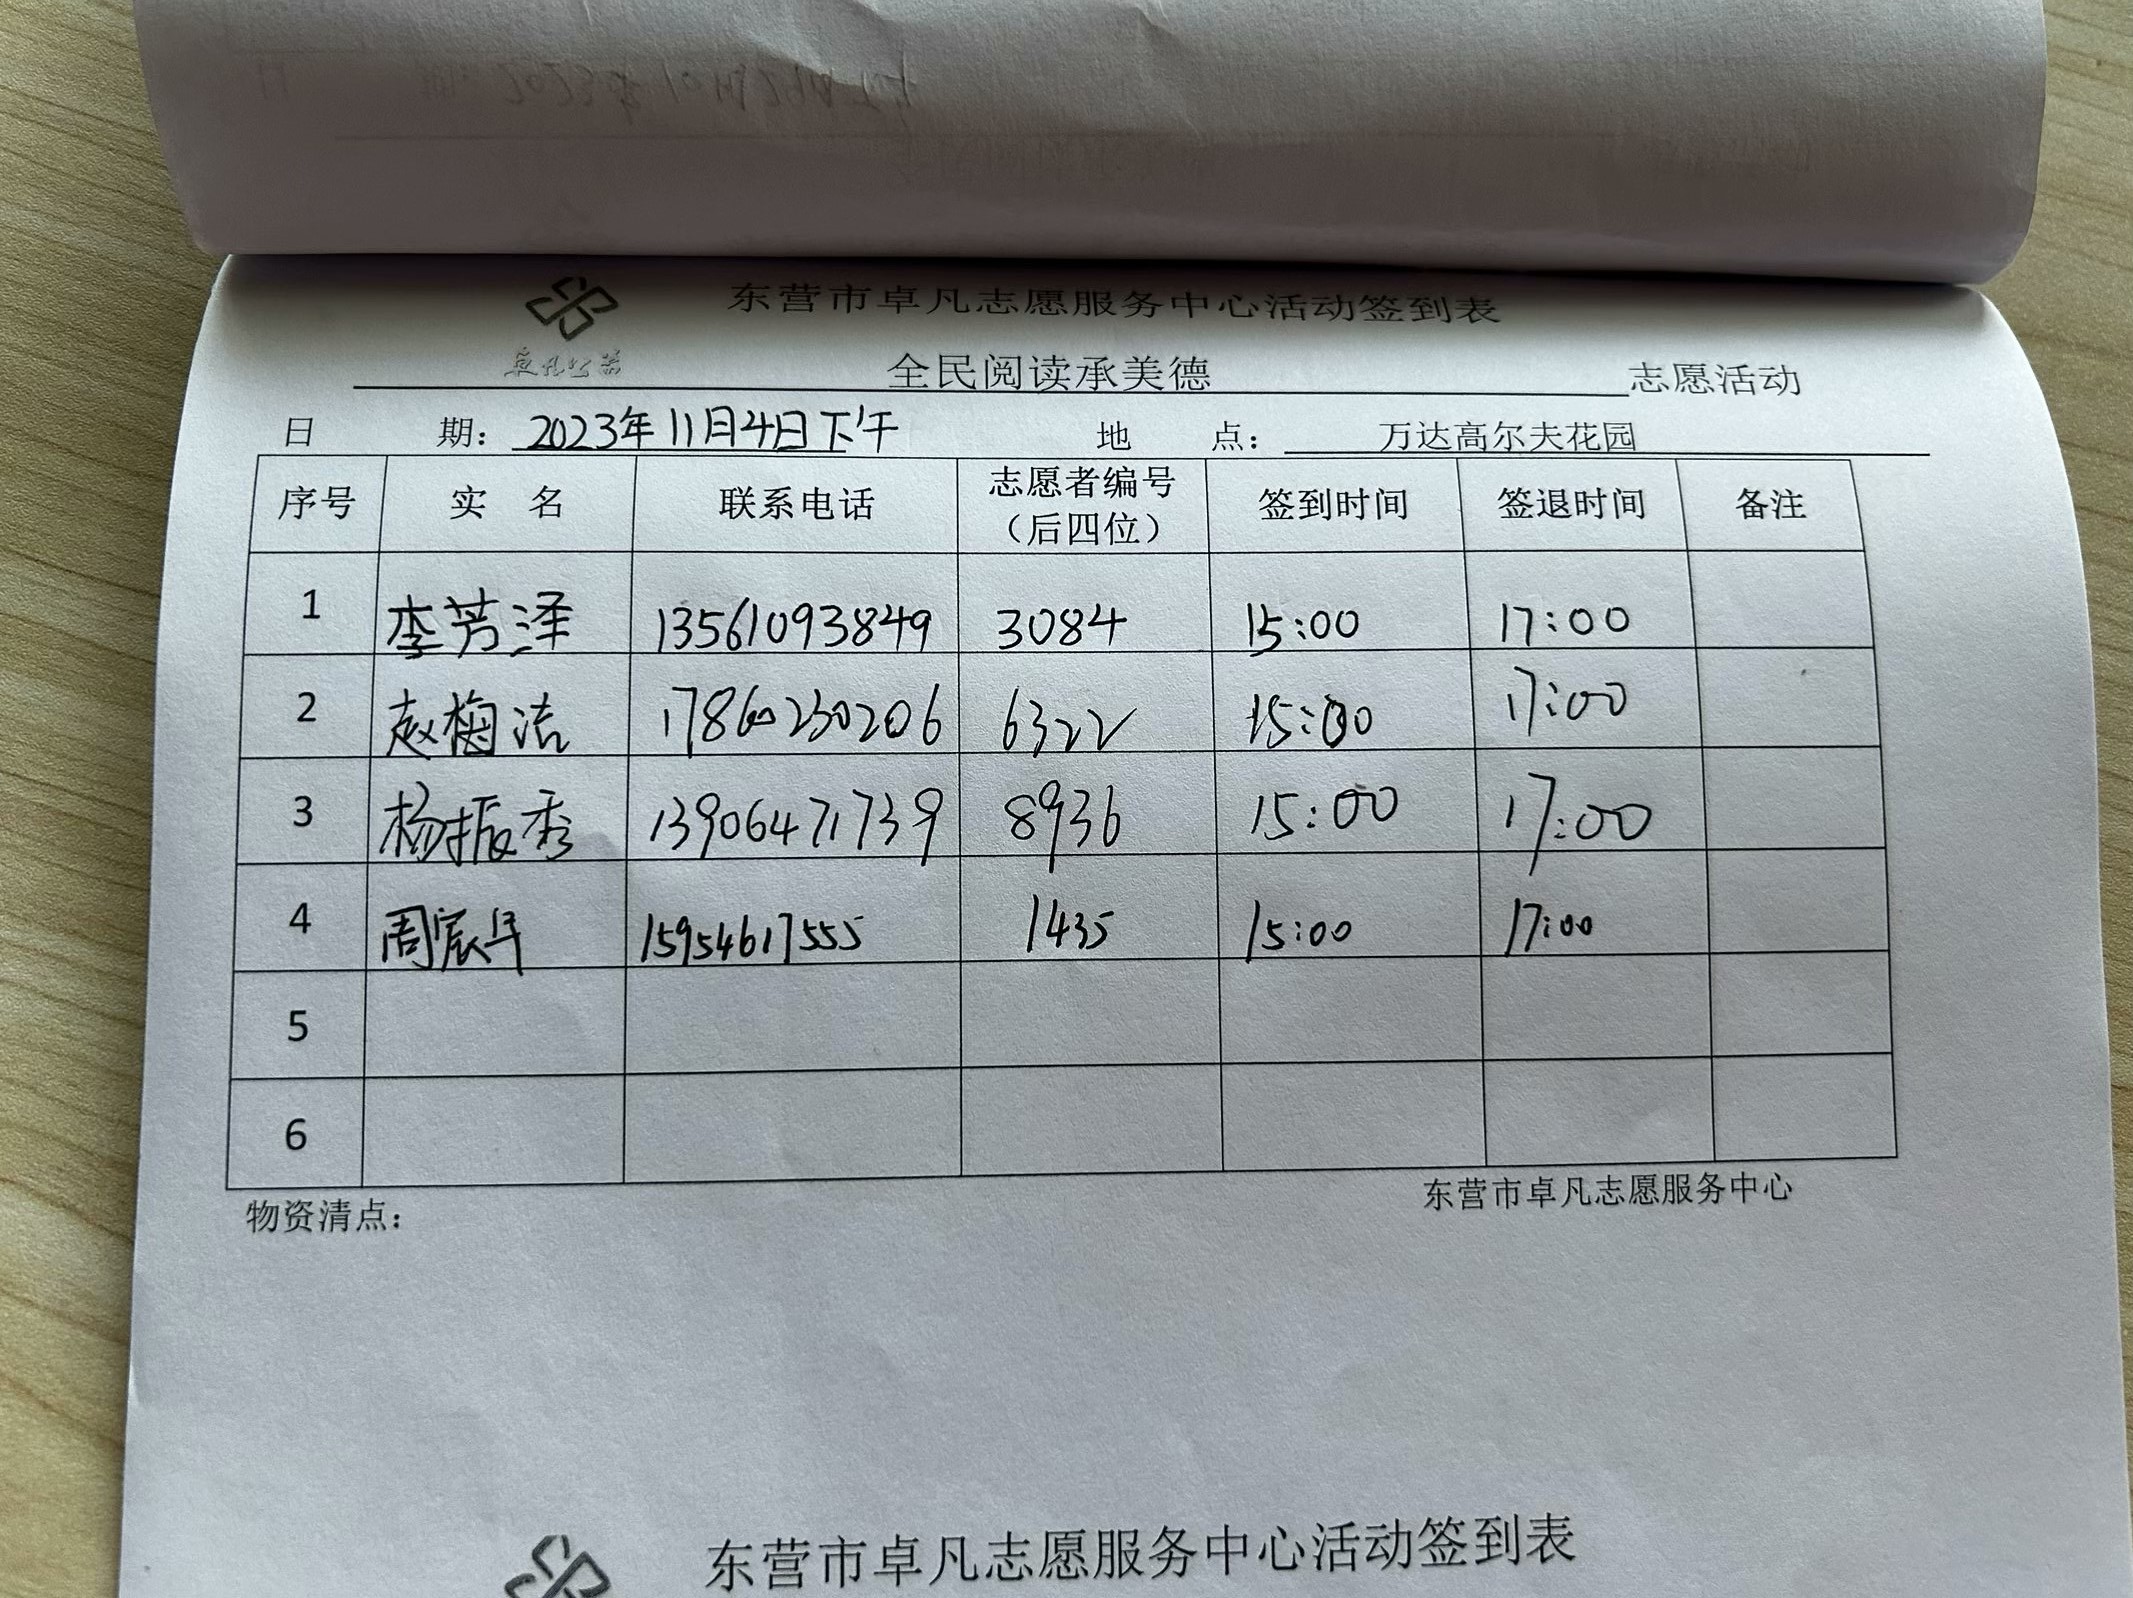 东营市卓凡志愿服务中心活动签到表
卓凡公益
全民阅读承美德 志愿活动
日 期：2023年11月4日下午 地 点：万达高尔夫花园
序号 实 名 联系电话 志愿者编号（后四位） 签到时间 签退时间 备注
1 李芳泽 13561093849 3084 15:00 17:00
2 赵梅洁 17860230206 6322 15:00 17:00
3 杨振秀 13906471739 8936 15:00 17:00
4 周宸年 15954617555 1435 15:00 17:00
5
6
物资清点： 东营市卓凡志愿服务中心
东营市卓凡志愿服务中心活动签到表